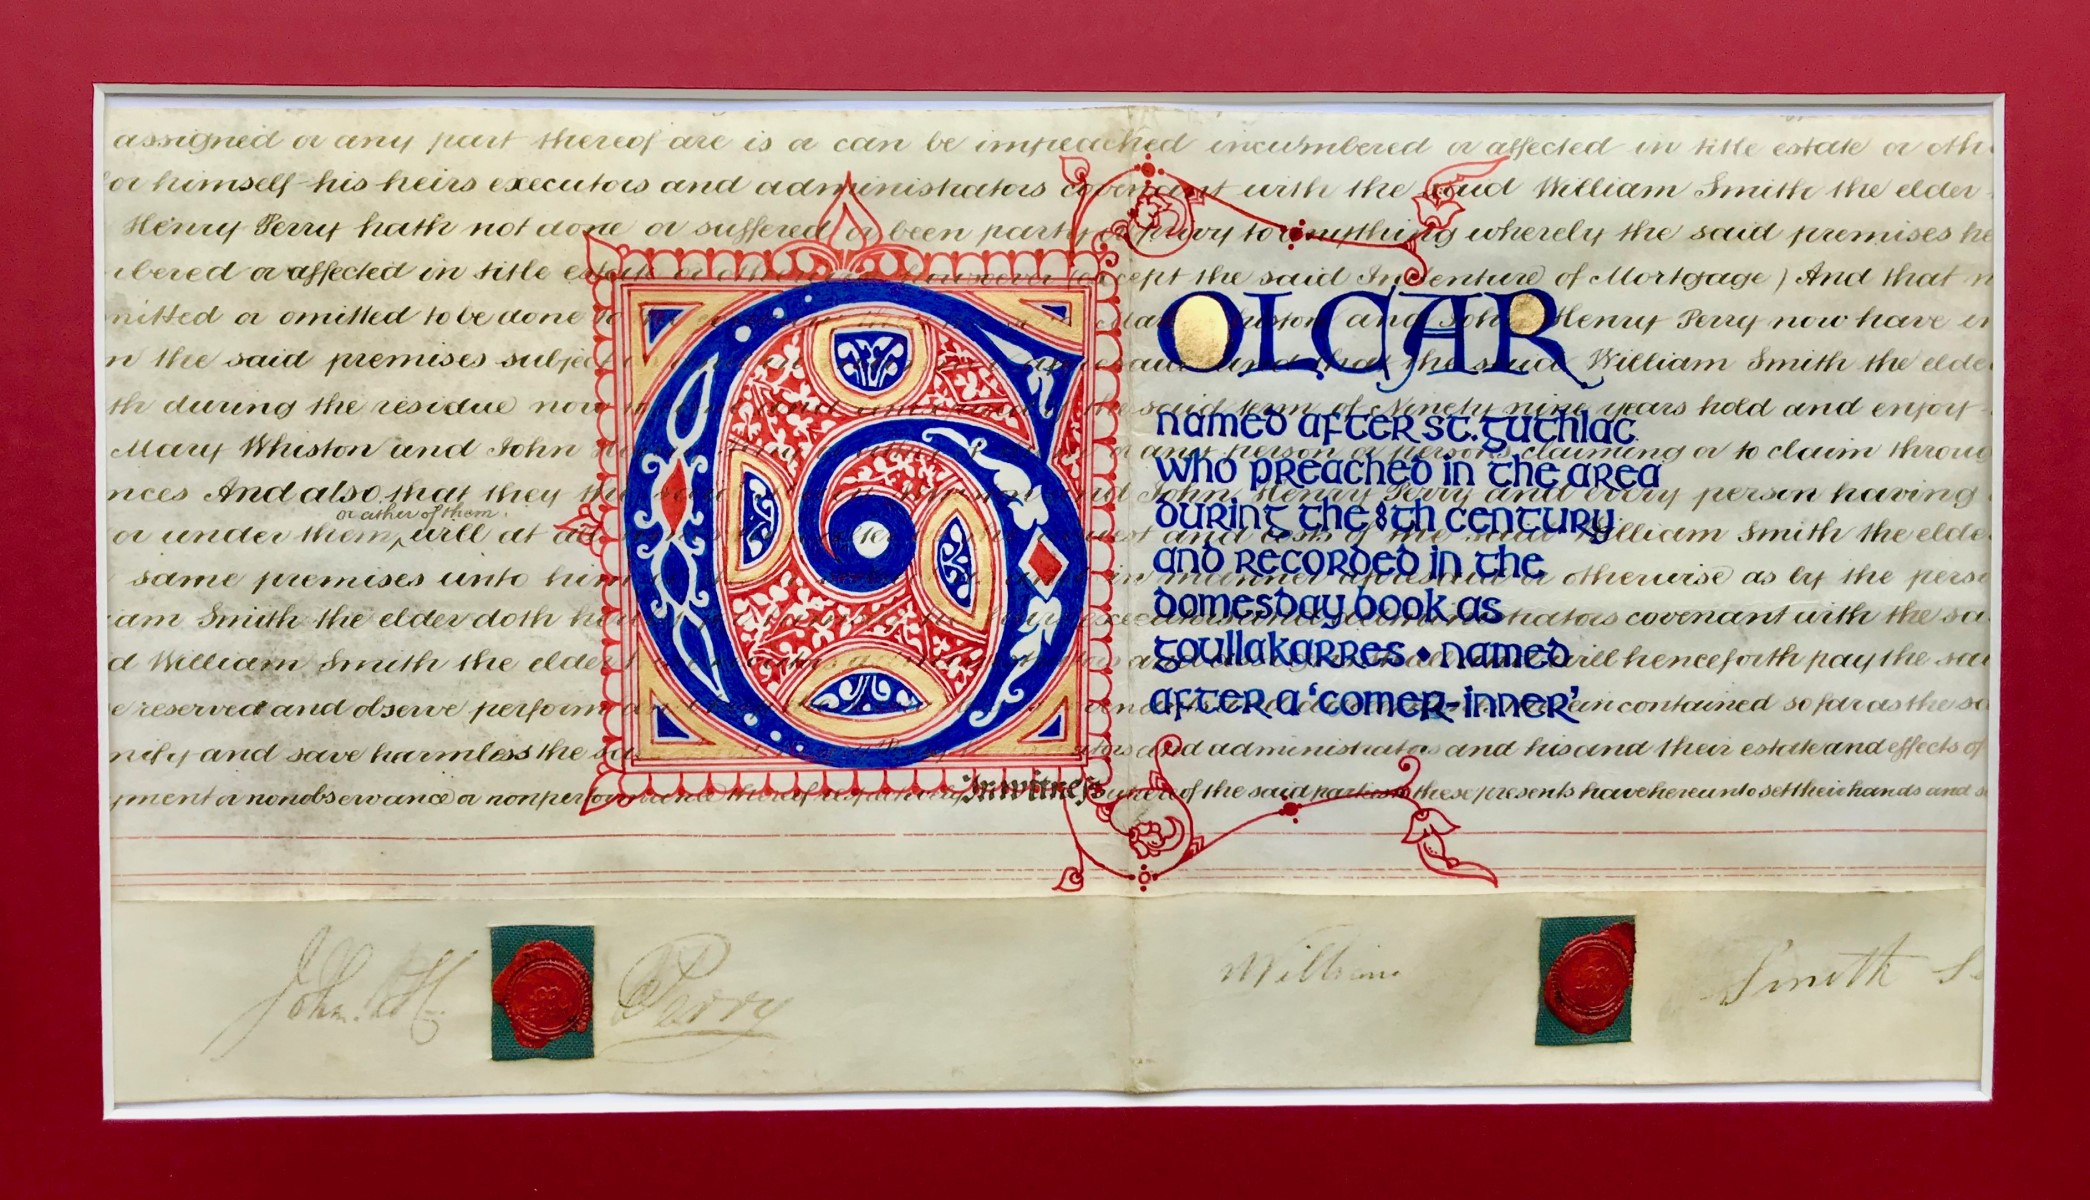 assigned or any part thereof are is or can be impeached incumbered or affected in title estate or oth
or himself his heirs executors and administrators covenant with the said William Smith the elder
Henry Perry hath not done or suffered or been party or privy to anything whereby the said premises he
ibered or affected in title estate or otherwise howsoever (except the said Indenture of Mortgage) And that n
nitted or omitted to be done Whiston and John Henry Perry now have in
n the said premises subject said and that the said William Smith the elde
th during the residue now said term of Ninety nine years hold and enjoy
Mary Whiston and John any person or persons claiming or to claim throug
nces And also that they the said John Henry Perry and every person having
or either of them.
or under them will at all and costs of the said William Smith the elde
same premises unto him in manner aforesaid or otherwise as by the perso
iam Smith the elder doth executors and administrators covenant with the sa
d William Smith the elder will henceforth pay the sai
e reserved and observe perform contained so far as the sa
nify and save harmless the said and administrators and his and their estate and effects of
yment or nonobservance or nonperformance thereof respectively In witness whereof the said parties to these presents have hereunto set their hands and s
G
OLCAR
named after St. Guthlac
who preached in the area
during the 8th century
and recorded in the
Domesday Book as
Goullakarres • named
after a 'comer-inner'
John H Perry
William Smith S